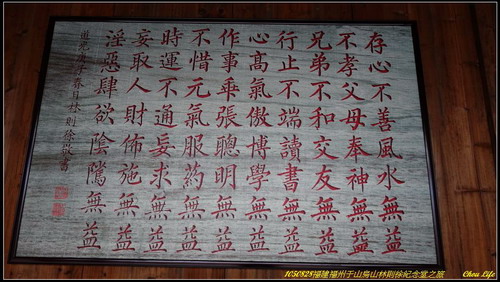 存心不善風水無益
不孝父母奉神無益
兄弟不和交友無益
行止不端讀書無益
心髙氣傲博學無益
作事乖張聰明無益
不惜元氣服藥無益
時運不通妄求無益
妄取人財佈施無益
淫惡肆欲陰騭無益
道光庚子春日林則徐敬書
1050828福建福州于山烏山林則徐紀念堂之旅
Chou Life